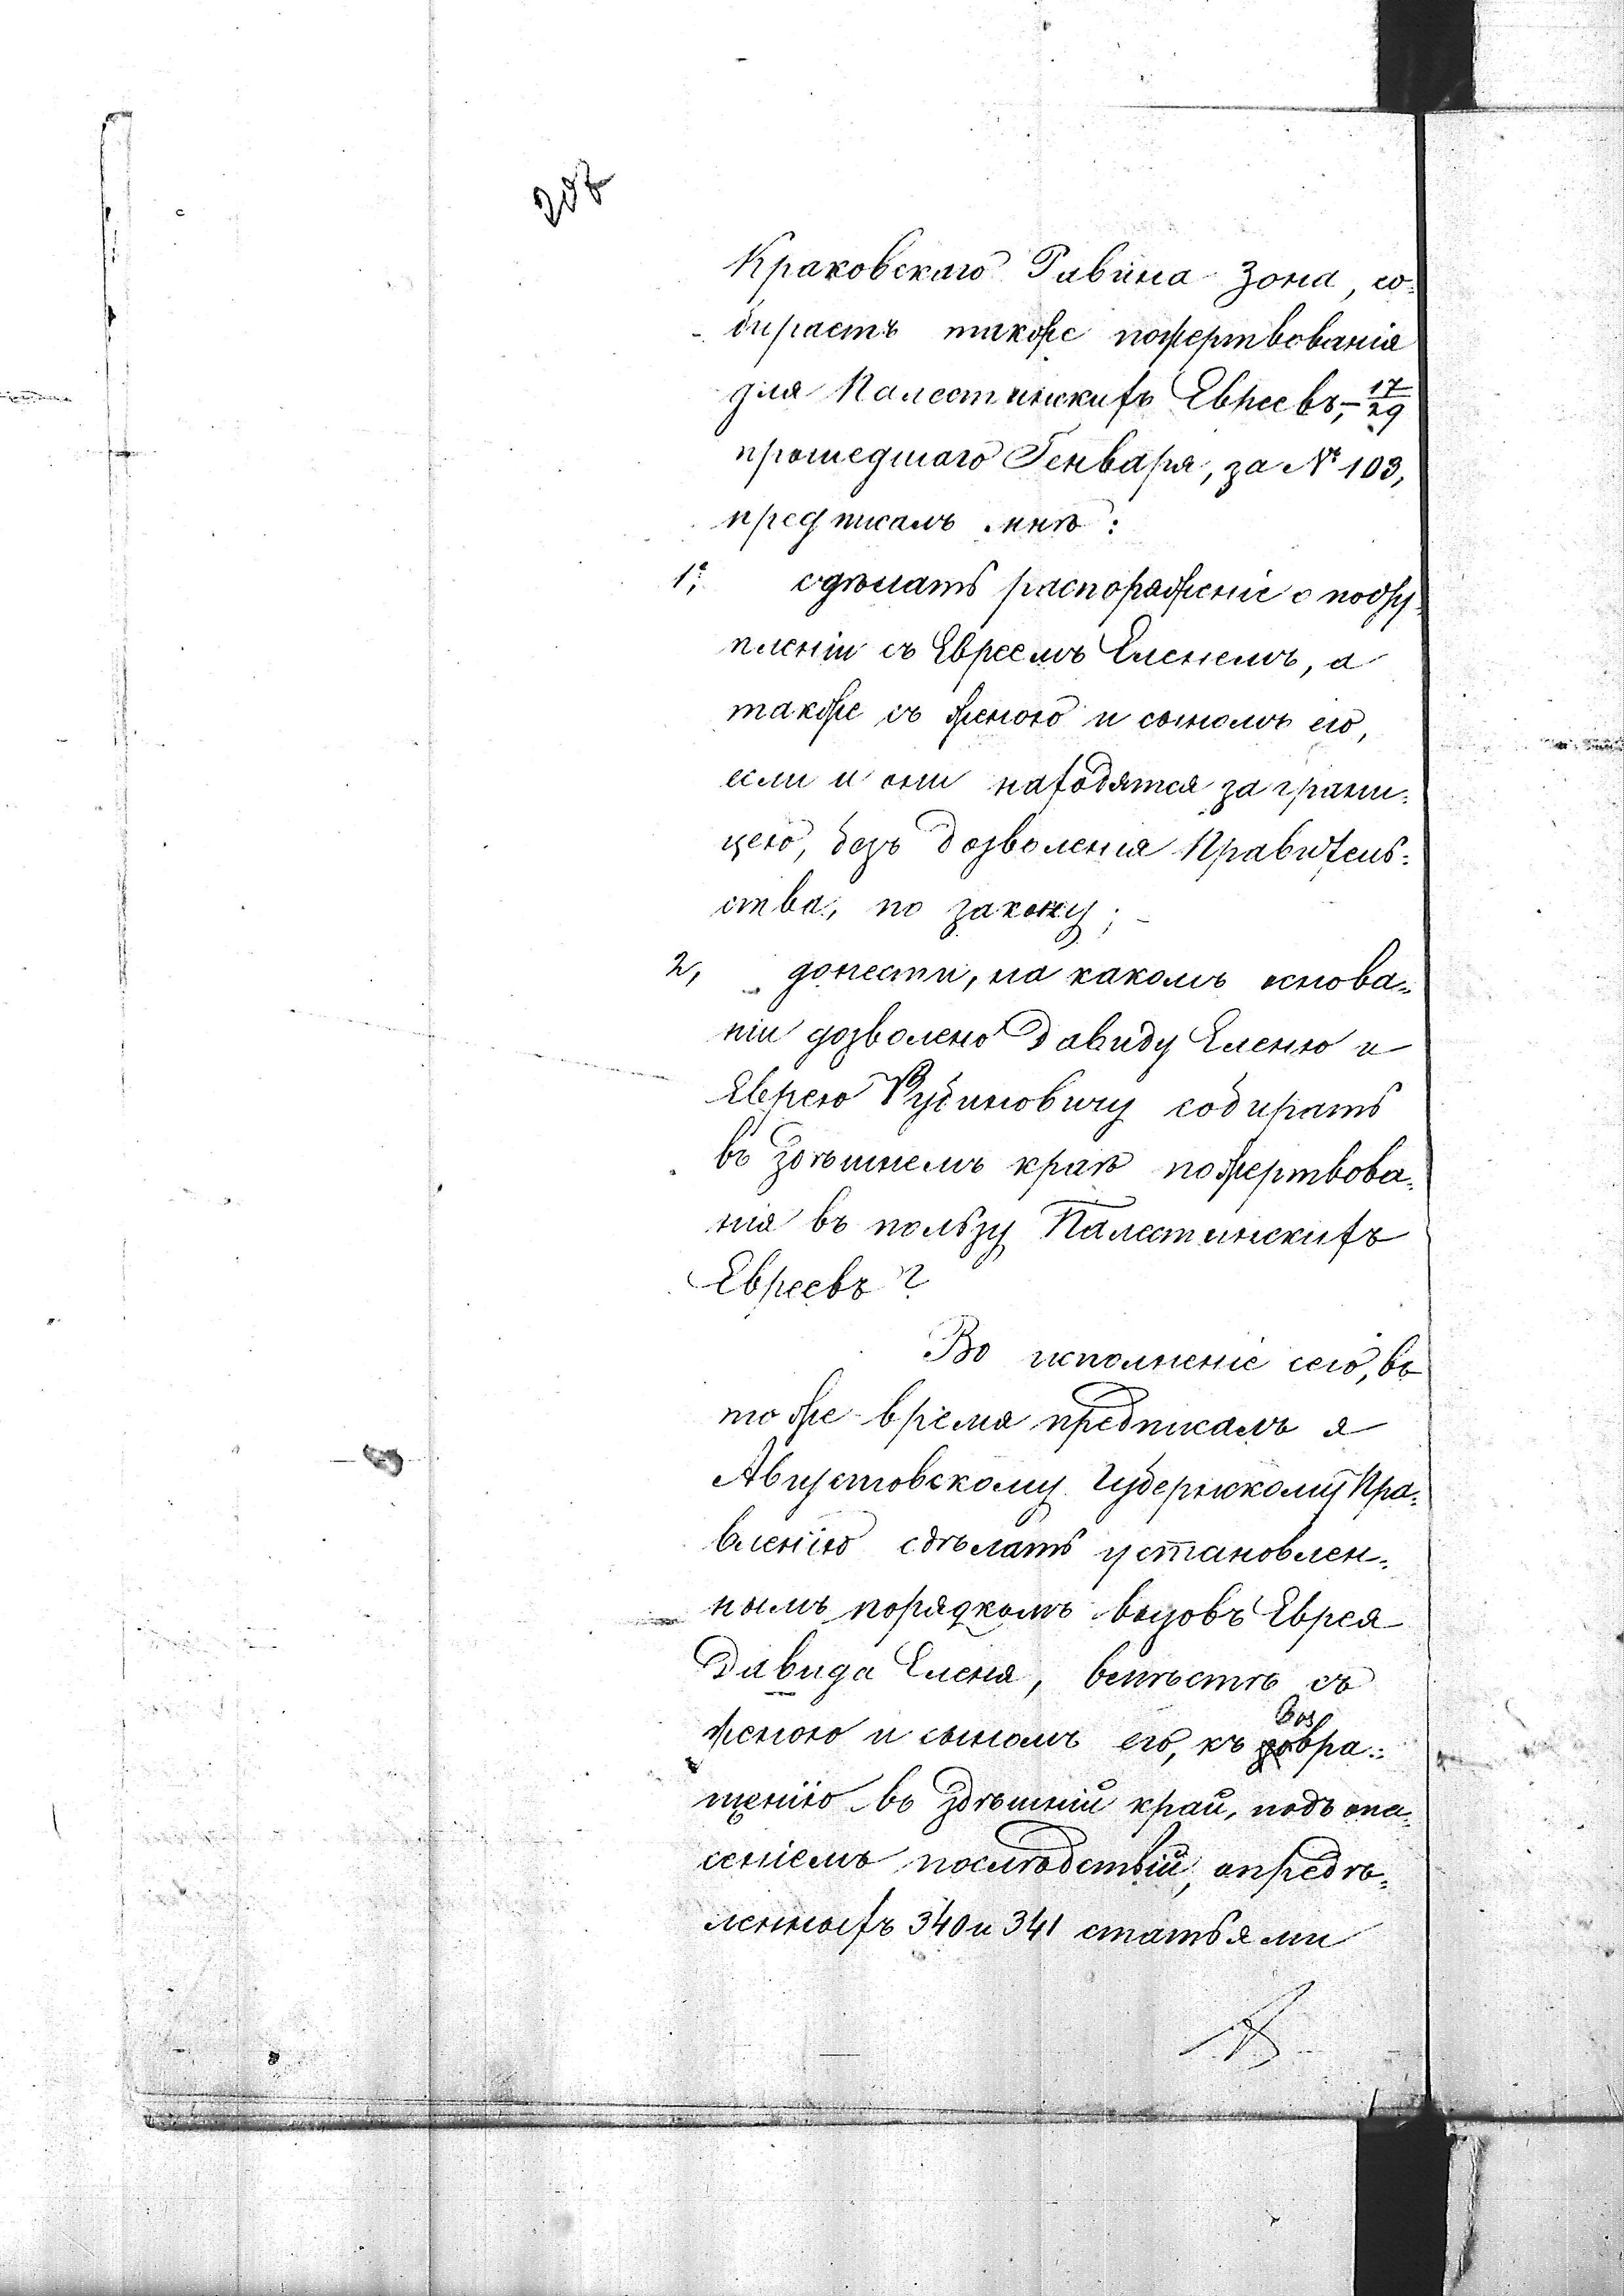 207
Краковскаго Равина Зона, со=
бираетъ также пожертвованія
для Палестинскихъ Евреевъ,– 17/29
прошедшаго Генваря, за № 103,
предписалъ мнѣ:
1, сдѣлать распоряженіе о посту=
пленіи съ Евреемъ Еленемъ, а
также съ женою и сыномъ его,
если и они находятся за грани=
цею, безъ дозволенія Правитель=
ства, по закону;–
2, донести, на какомъ основа=
ніи дозволено Давиду Еленю и
Еврею Рубиновичу собирать
въ здѣшнемъ краѣ пожертвова=
нія въ пользу Палестинскихъ
Евреевъ?
Во исполненіе сего, въ
то же время предписалъ я
Августовскому Губернскому Пра=
вленію сдѣлать установлен=
нымъ порядкомъ вызовъ Еврея
Давида Еленя, вмѣстѣ съ
женою и сыномъ его, къ возвра=
щенію въ здѣшній край, подъ опа=
сеніемъ послѣдствій, опредѣ=
ленныхъ 340 и 341 статьями